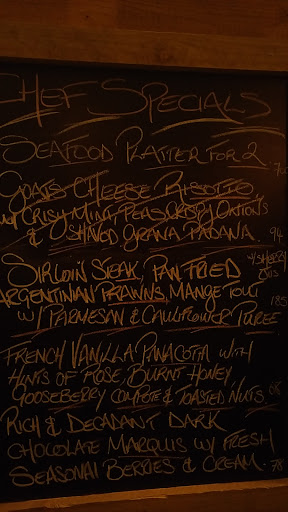 CHEF SPECIALS
SEAFOOD PLATTER FOR 2
GOATS CHEESE RISOTTO
W/ CRISPY MINT, PEAS, CRISPY ONIONS
& SHAVED GRANA PADANA 94
SIRLOIN STEAK, PAN FRIED W/ SHERRY
ARGENTINIAN PRAWNS, MANGE TOUT
W/ PARMESAN & CAULIFLOWER PUREE 185
FRENCH VANILLA PANACOTTA WITH
HINTS OF ROSE, BURNT HONEY,
GOOSEBERRY COMPOTE & TOASTED NUTS 68
RICH & DECADANT DARK
CHOCOLATE MARQUIS W/ FRESH
SEASONAL BERRIES & CREAM. 78